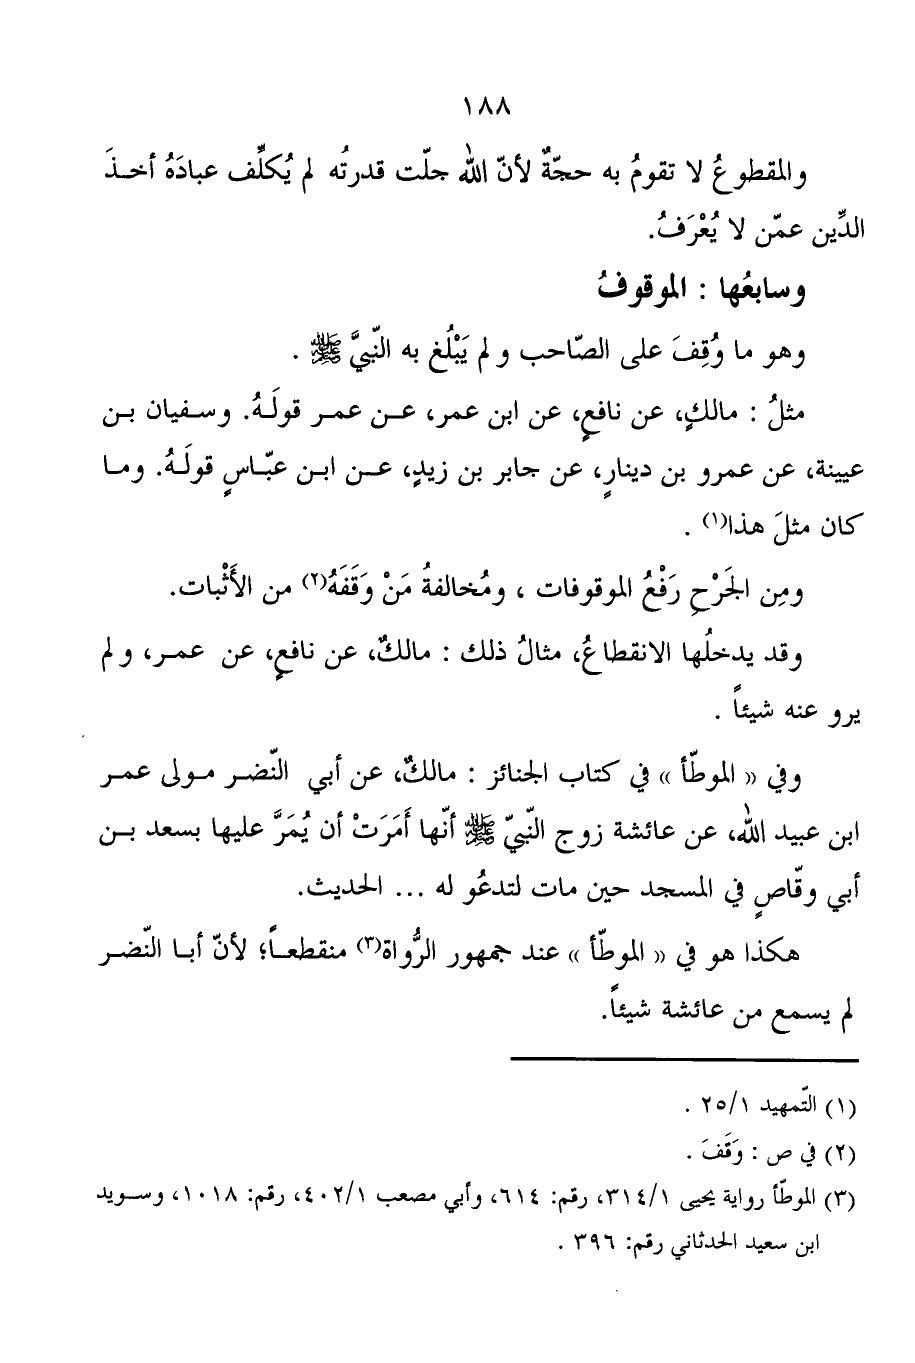 ١٨٨
والمقطوعُ لا تقومُ به حجّةٌ لأنّ الله جلّت قدرتُه لم يُكلِّف عبادَهُ أخذَ
الدِّين عمّن لا يُعْرَفُ.
وسابعُها : الموقوفُ
وهو ما وُقِفَ على الصّاحب و لم يَبْلُغ به النّبيَّ ﷺ .
مثلُ : مالكٍ، عن نافعٍ، عن ابن عمر، عن عمر قولَهُ. وسفيان بن
عيينة، عن عمرو بن دينارٍ، عن جابر بن زيدٍ، عن ابن عبّاسٍ قولَهُ. وما
كان مثلَ هذا(١) .
ومِن الجَرْحِ رَفْعُ الموقوفات ، ومُخالفةُ مَنْ وَقَفَهُ(٢) من الأَثْبات.
وقد يدخلُها الانقطاعُ، مثالُ ذلك : مالكٌ، عن نافعٍ، عن عمر، و لم
يرو عنه شيئاً .
وفي « الموطّأ » في كتاب الجنائز : مالكٌ، عن أبي النّضر مولى عمر
ابن عبيد الله، عن عائشة زوج النّبيّ ﷺ أنّها أَمَرَتْ أن يُمَرَّ عليها بسعد بن
أبي وقّاصٍ في المسجد حين مات لتدعُو له ... الحديث.
هكذا هو في « الموطّأ » عند جمهور الرُّواة(٣) منقطعاً؛ لأنّ أبا النّضر
لم يسمع من عائشة شيئاً.
(١) التّمهيد ٢٥/١ .
(٢) في ص : وَقَفَ .
(٣) الموطّأ رواية يحيى ٣١٤/١، رقم: ٦١٤، وأبي مصعب ٤٠٢/١، رقم: ١٠١٨، وسويد
ابن سعيد الحدثاني رقم: ٣٩٦ .